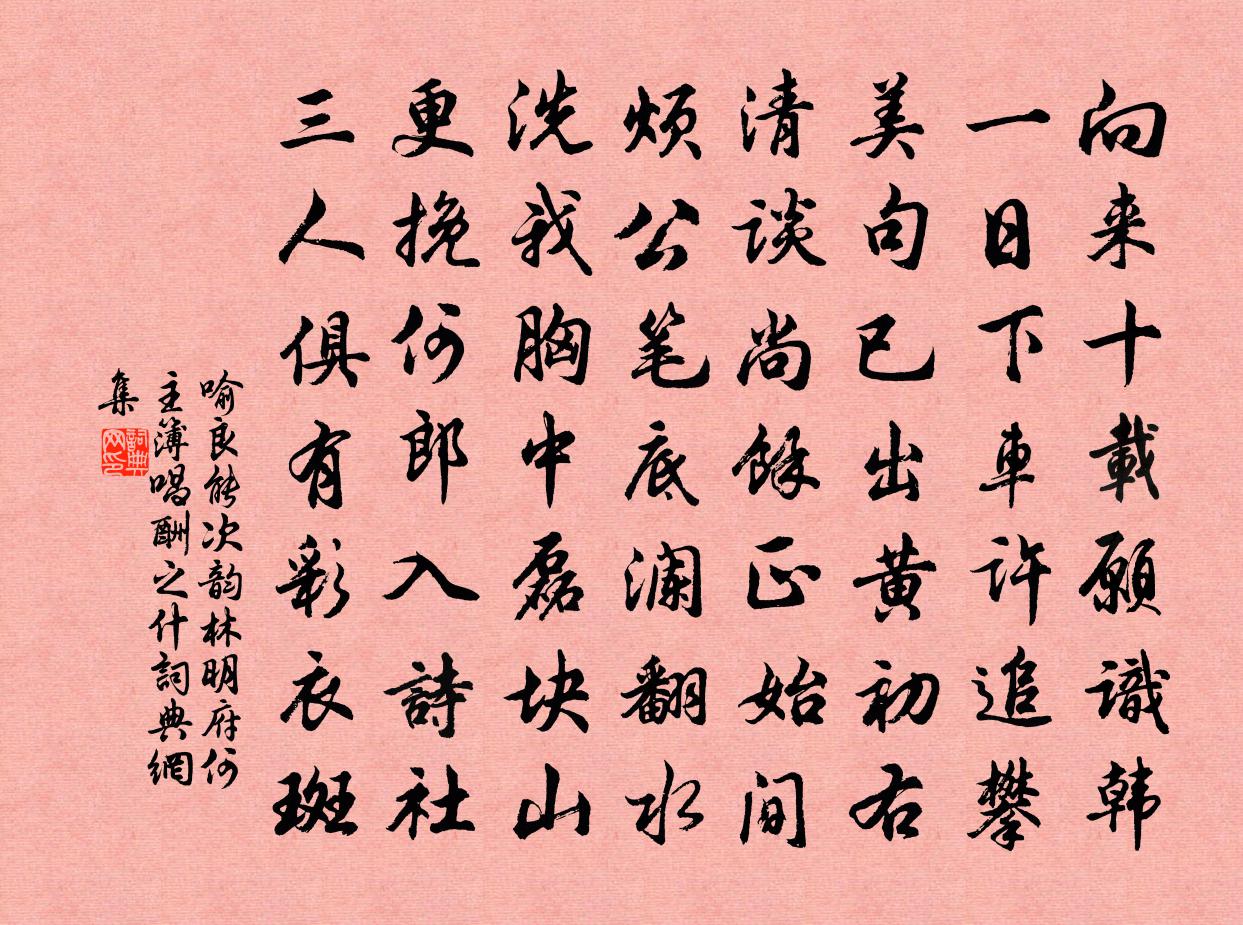 向来十載願識韩
一日下車许追攀
美句已出黄初右
清谈尚餘正始间
烦公笔底澜翻水
洗我胸中磊块山
更挽何郎入詩社
三人俱有彩衣斑
喻良能次韵林明府何
主簿唱酬之什詞典網
集
詞典
网印